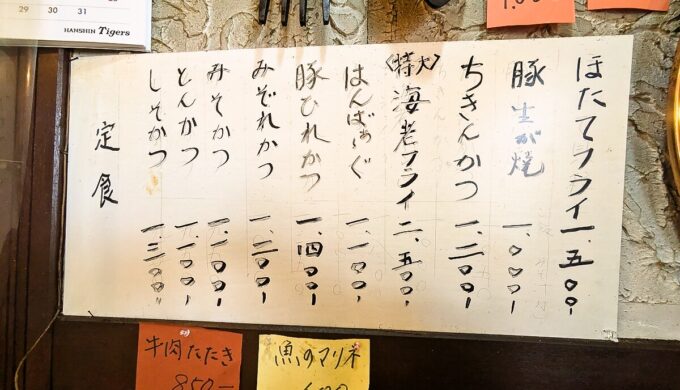 29 30 31
HANSHIN Tigers
ほたてフライ 一.五〇〇-
豚生が焼 一.〇〇〇-
ちきんかつ 一.二〇〇-
〈特大〉海老フライ 二.五〇〇-
はんばぁぐ 一.一〇〇-
豚ひれかつ 一.四〇〇-
みぞれかつ 一.二〇〇-
みそかつ 一.一〇〇-
とんかつ 一.一〇〇-
しそかつ 一.三〇〇-
定食
牛肉たたき
850-
魚のマリネ